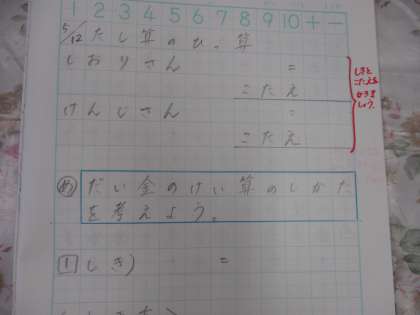 1 2 3 4 5 6 7 8 9 10 + −
5/12 たし算のひっ算
しおりさん =
こたえ
けんじさん =
こたえ
しきと
こたえを
かきま
しょう。
め だい金のけい算のしかた
を考えよう。
1 しき) =